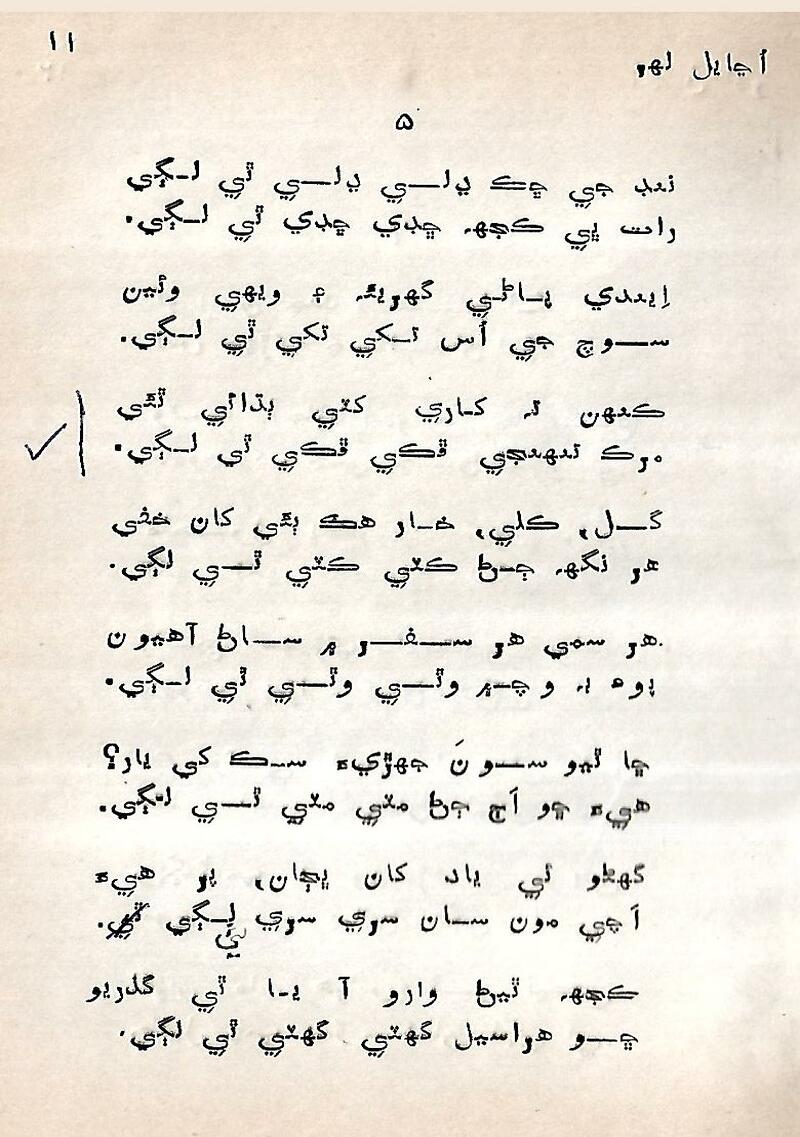 ۱۱
اڃايل لهر
۵
ننڊ جي چڪ ڊلي ڊلي ٿي لڳي
رات ڀي ڪجهہ ڇڊي ڇڊي ٿي لڳي.
اِيندي پاڻي گهريئہ ۽ ويهي وئين
سوچ جي اُس تکي تکي ٿي لڳي.
ڪنهن تہ ڪاري ڪٿي ٻڌائي ٿئي
مرڪ تنهنجي ڦڪي ڦڪي ٿي لڳي.
گل، ڪلي، خار هڪ ٻئي کان خفي
هر نگهہ ڄڻ ڪٽي ڪٽي ٿي لڳي.
هر سمي هر سفر ۾ ساڻ آهيون
پوءِ بہ وچ۾ وٿي وٿي ٿي لڳي.
ڇا ٿيو سونَ جهڙيءَ سڪ کي يار؟
هيءَ ڇو اَڄ ڄڻ مٽي مٽي ٿي لڳي.
گهڻو ئي ياد کان ڀڄان، پر هيءَ
اَچي مون سان سري سري لڳي ٿي.
ٿي
ڪجهہ ٿيڻ وارو آ يا ٿي گذريو
ڇو هراسيل گهٽي گهٽي ٿي لڳي.